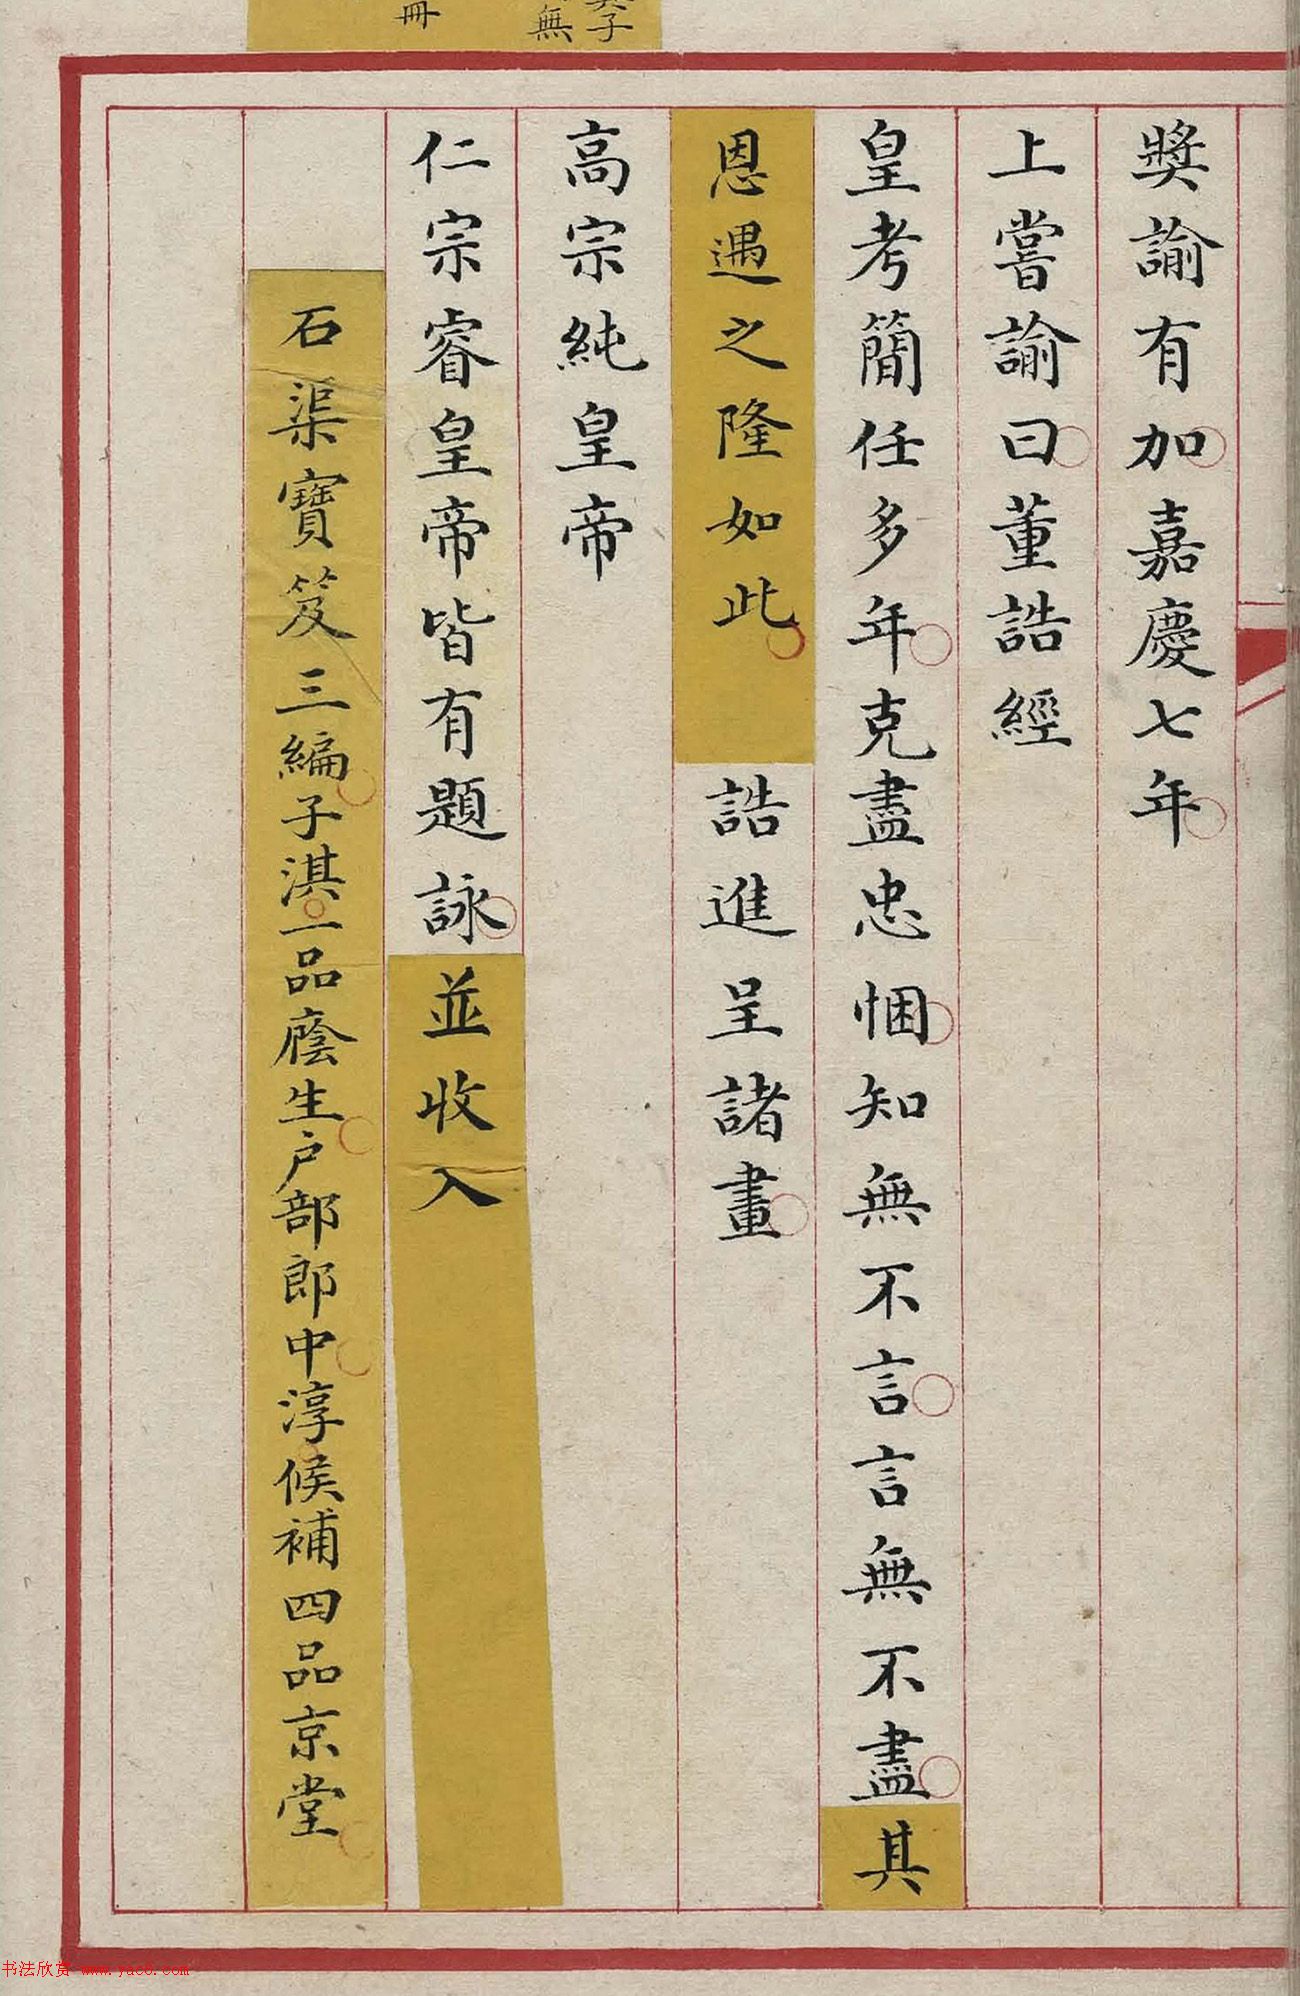 其子
無
冊
奬諭有加嘉慶七年
上嘗諭曰董誥經
皇考簡任多年克盡忠悃知無不言言無不盡其
恩遇之隆如此誥進呈諸畫
高宗純皇帝
仁宗睿皇帝皆有題詠並收入
石渠寶笈三編子淇一品廕生戶部郎中淳候補四品京堂
书法欣赏 www.yac8.com